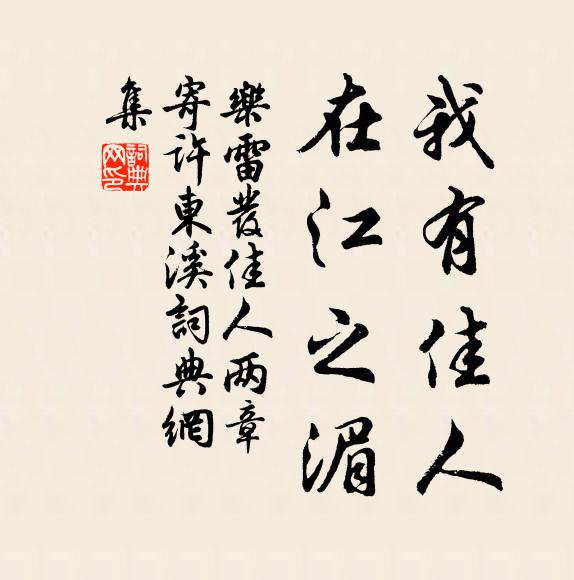 我有佳人
在江之湄
樂雷發佳人兩章
寄許東溪詞典網
集
詞典网印